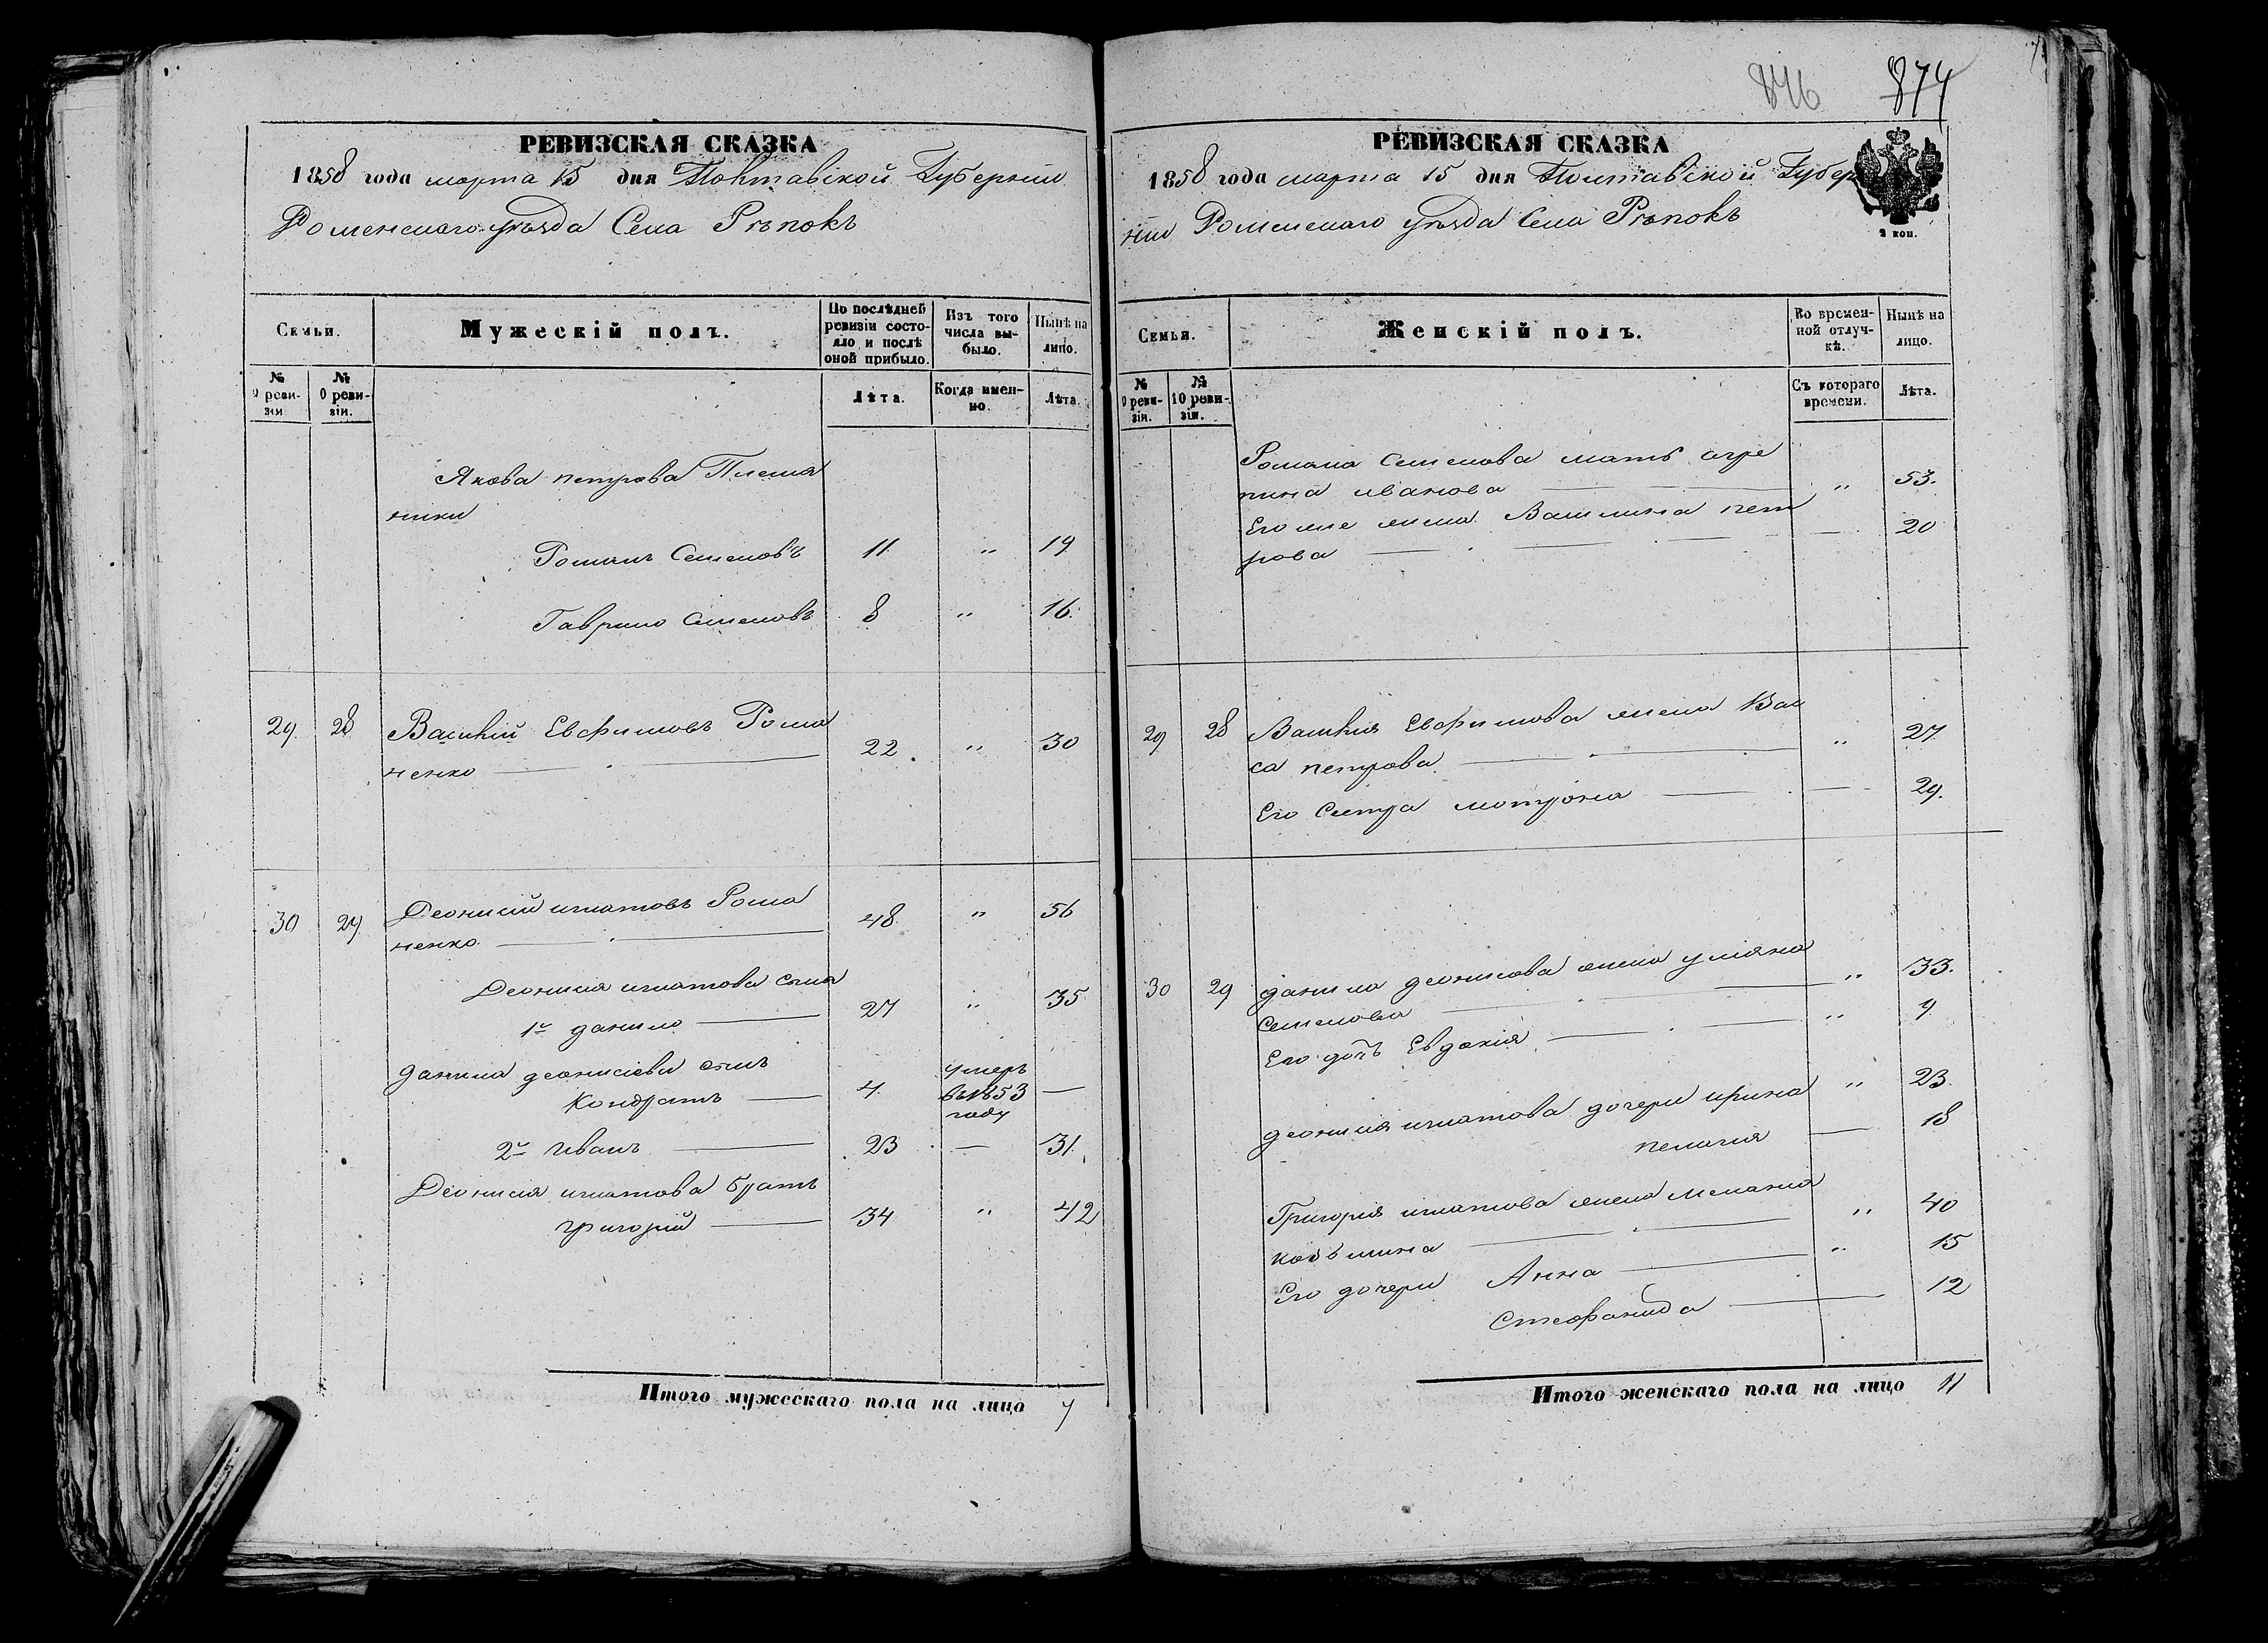 846 874
РЕВИЗСКАЯ СКАЗКА
1858 года марта 15 дня Полтавской Губернии
Роменскаго уѣзда Села Рѣпокъ
Семьи.
Мужескій полъ.
По послѣдней ревизіи состояло и послѣ оной прибыло.
Изъ того числа выбыло.
Нынѣ на лицо.
№ 9 ревизіи
№ 0 ревизіи.
Лѣта.
Когда именно.
Лѣта.
Якова петрова Племя
ники
Романъ Семеновъ 11 " 19
Гаврило Семеновъ 8 " 16
29 28 Василій Евфимовъ Рома 22 " 30
ненко
30 29 Деонисій игнатовъ Рома 48 " 56
ненко
Деонисія игнатова сына
1й данило 27 " 35
данила деонисіева сынъ
Кондратъ 4 умеръ въ 1853 году —
2й Иванъ 23 — 31
Деонисія игнатова братъ
григорій 34 " 42
Итого мужескаго пола на лицо 7
РЕВИЗСКАЯ СКАЗКА
1858 года марта 15 дня Полтавской Губер
ніи Роменскаго уѣзда Села Рѣпокъ
2 коп.
Семьи.
Женскій полъ.
Во временной отлучкѣ.
Нынѣ на лицо.
№ 9 ревизіи.
№ 10 ревизіи.
Съ котораго времени.
Лѣта.
Романа Семенова мать агре
пина иванова " 53.
Его же жена Василина пет
рова — 20
29 28 Василія Евфимова жена Ва
са петрова " 27
Его Сестра мотрона — 29.
30 29 данила деонисова жена уліяна
Семенова " 33.
Его дочь Евдокія " 9
деонисія игнатова дочери ирина " 23.
пелагия — 18
Григорія игнатова жена Мелания
козьмина " 40
Его дочери Анна " 15
Стефанида 12
Итого женскаго пола на лицо 11